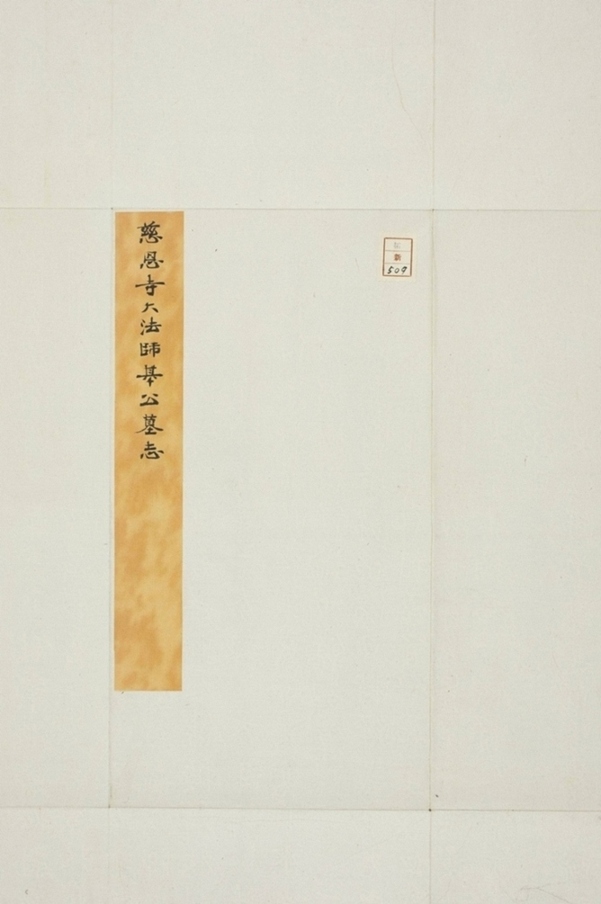 慈恩寺大法師基公墓志
新
509